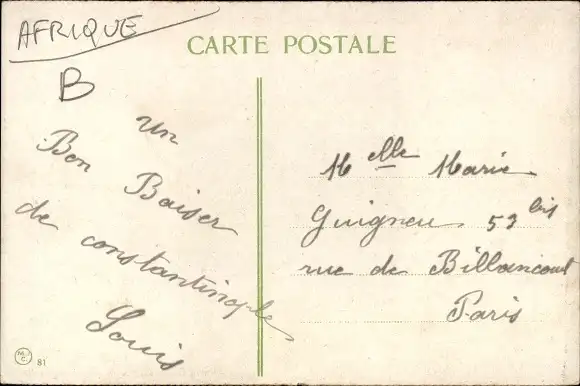 AFRIQUE
B
CARTE POSTALE
Un
Bon Baiser
de constantinople
Louis
Melle Marie
Guigneu 53 bis
rue de Billancourt
Paris
M.J.C. 81